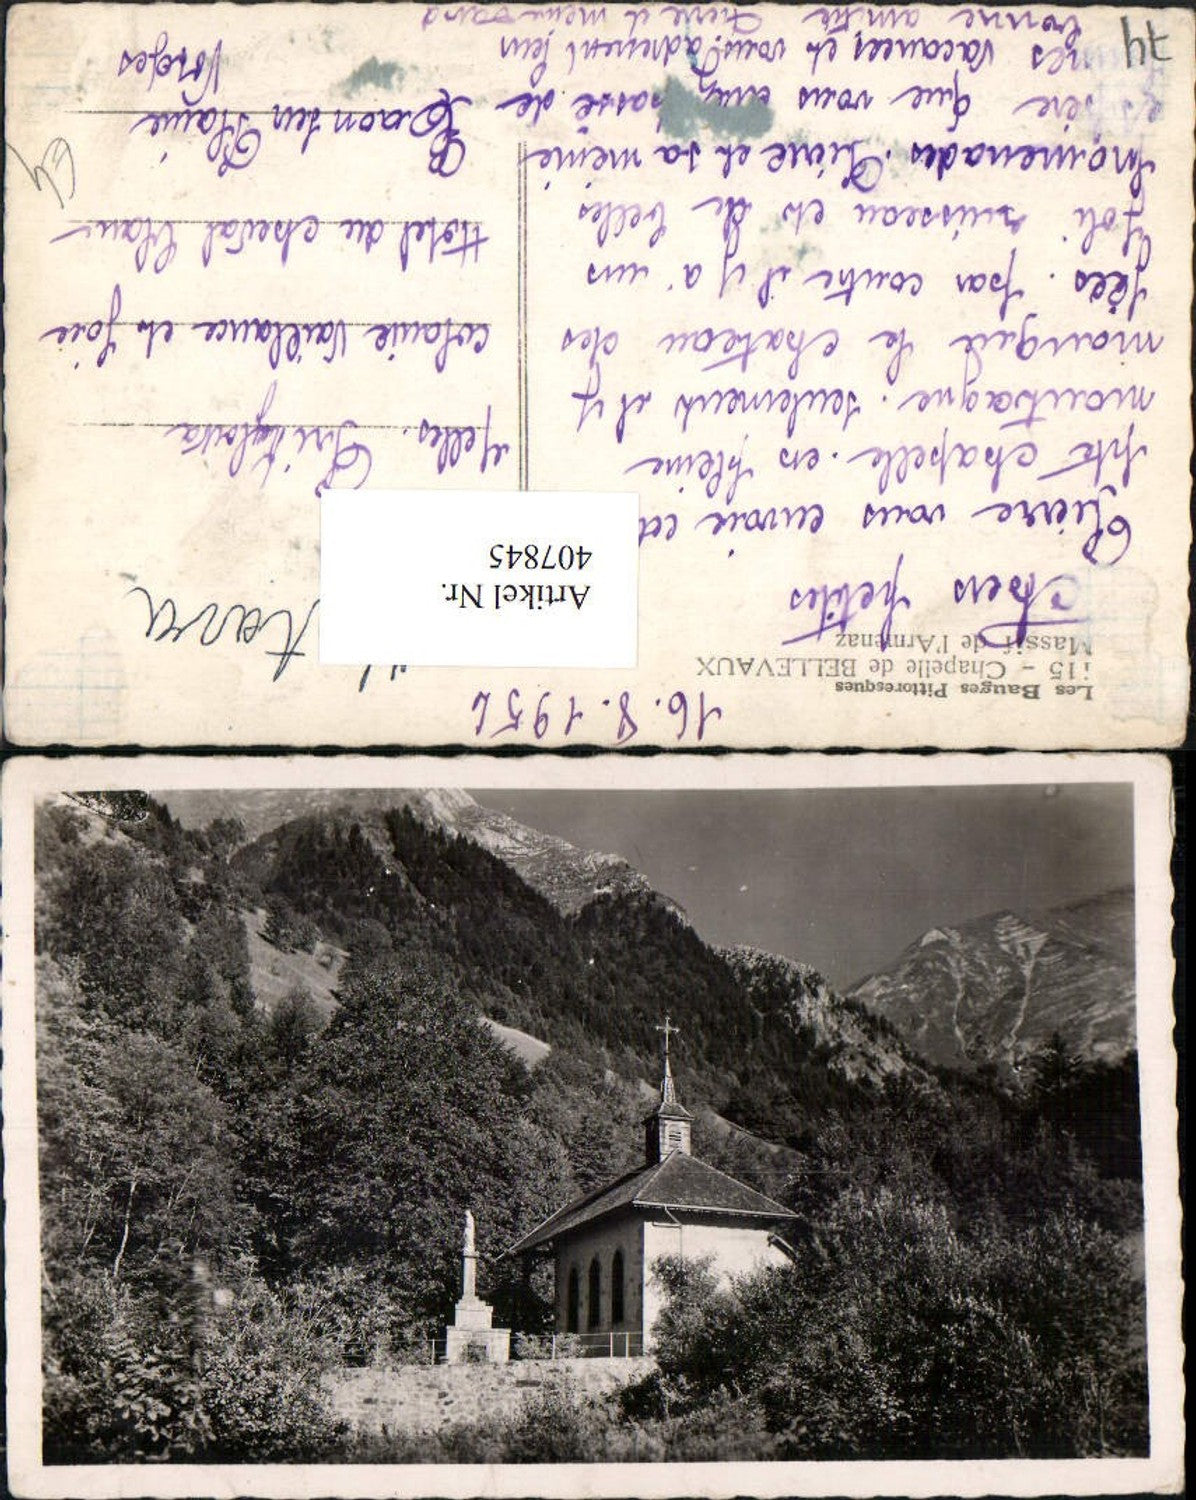 Les Bauges Pittoresques
115 - Chapelle de BELLEVAUX
Massif de l'Armenaz
16.8.1952
Chers petites
Pierre vous envoie cet
pte chapelle. en pleine
montagne. seulement il y
manque le chateau des
fées. par contre il y a' uns
Joli ruisseau et de belles
promenades. Pierre et sa mémé
espère que vous avez passé de
bonnes vacances, et vous adressent leur
bonne amitié Pierre et mémé
Artikel Nr.
407845
Melles.
colonie Vaillance et Joie
Hôtel du cheval blanc
Raon les Plaine
Vosges